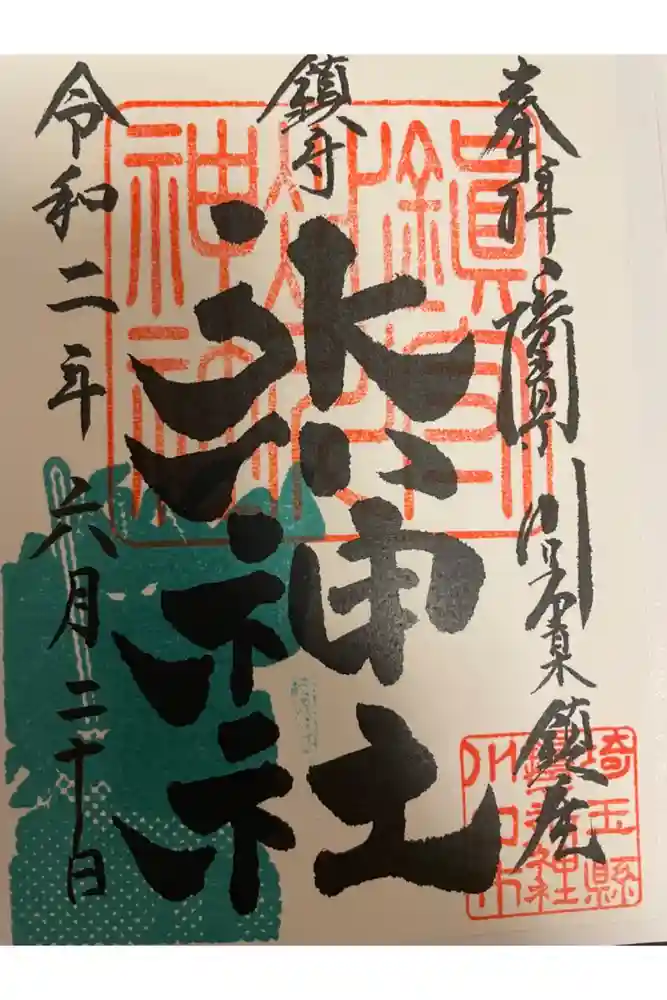 奉拝
鎮座
鎮守
氷川神社
令和二年六月二十日
鎮守
氷川
神社
埼玉縣
川口市